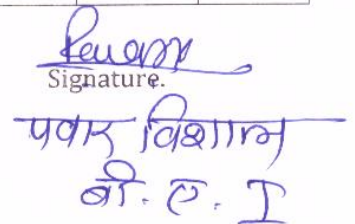 Signature.
पवार विशाल
बी. ए. I